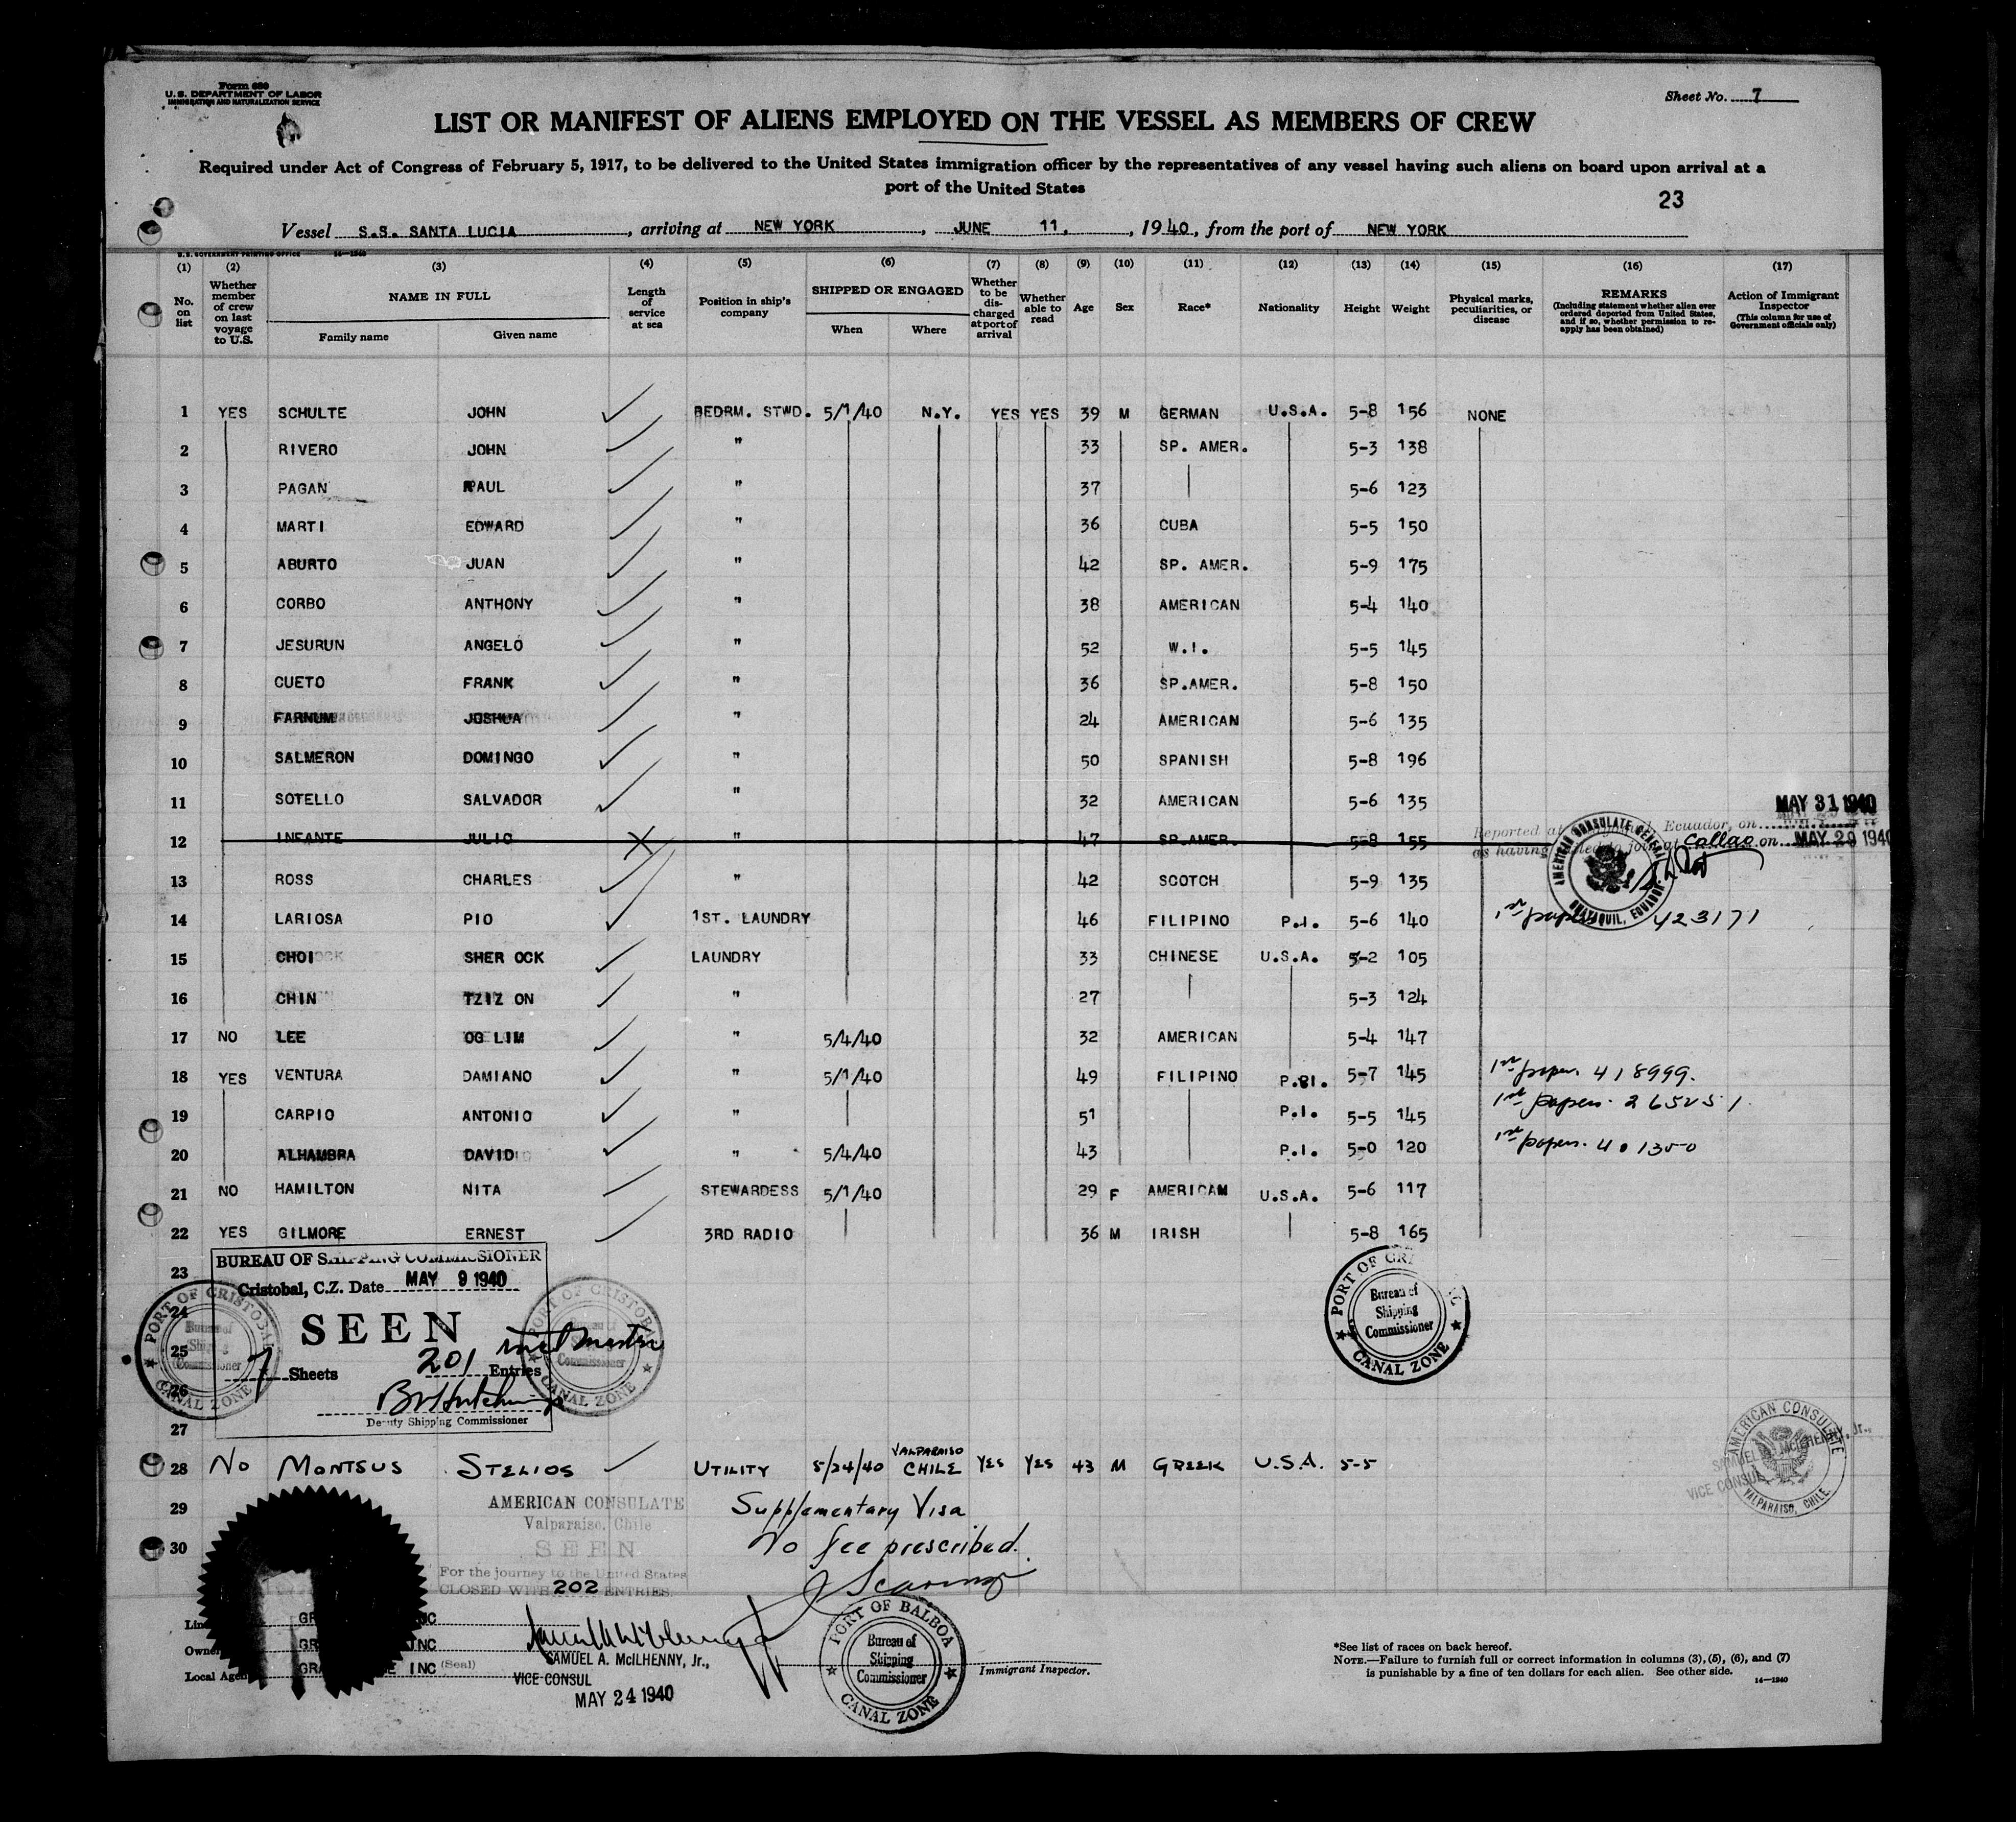 Form 680
U. S. DEPARTMENT OF LABOR
IMMIGRATION AND NATURALIZATION SERVICE
Sheet No. 7
LIST OR MANIFEST OF ALIENS EMPLOYED ON THE VESSEL AS MEMBERS OF CREW
Required under Act of Congress of February 5, 1917, to be delivered to the United States immigration officer by the representatives of any vessel having such aliens on board upon arrival at a
port of the United States
23
Vessel S.S. SANTA LUCIA, arriving at NEW YORK, JUNE 11, 1940, from the port of NEW YORK
U. S. GOVERNMENT PRINTING OFFICE 14—1940
(1) (2) (3) (4) (5) (6) (7) (8) (9) (10) (11) (12) (13) (14) (15) (16) (17)
No. on list
Whether member of crew on last voyage to U.S.
NAME IN FULL
Family name Given name
Length of service at sea
Position in ship's company
SHIPPED OR ENGAGED
When Where
Whether to be discharged at port of arrival
Whether able to read
Age
Sex
Race*
Nationality
Height
Weight
Physical marks, peculiarities, or disease
REMARKS
(Including statement whether alien ever ordered deported from United States, and if so, whether permission to reapply has been obtained)
Action of Immigrant Inspector
(This column for use of Government officials only)
1 YES SCHULTE JOHN BEDRM. STWD. 5/1/40 N.Y. YES YES 39 M GERMAN U.S.A. 5-8 156 NONE
2 RIVERO JOHN " 33 SP. AMER. 5-3 138
3 PAGAN RAUL " 37 5-6 123
4 MARTI EDWARD " 36 CUBA 5-5 150
5 ABURTO JUAN " 42 SP. AMER. 5-9 175
6 CORBO ANTHONY " 38 AMERICAN 5-4 140
7 JESURUN ANGELO " 52 W.I. 5-5 145
8 CUETO FRANK " 36 SP.AMER. 5-8 150
9 FARNUM JOSHUA " 24 AMERICAN 5-6 135
10 SALMERON DOMINGO " 50 SPANISH 5-8 196
11 SOTELLO SALVADOR " 32 AMERICAN 5-6 135
MAY 31 1940
12 INFANTE JULIO " 47 SP.AMER. 5-8 155
Reported at Ecuador, on
as having failed to join at Callao on MAY 29 1940
AMERICAN CONSULATE GENERAL
GUAYAQUIL, ECUADOR
13 ROSS CHARLES " 42 SCOTCH 5-9 135
14 LARIOSA PIO 1ST. LAUNDRY 46 FILIPINO P.I. 5-6 140 1st papers 423171
15 CHOI SHER OCK LAUNDRY 33 CHINESE U.S.A. 5-2 105
16 CHIN TZIZ ON " 27 5-3 124
17 NO LEE OG LIM " 5/4/40 32 AMERICAN 5-4 147
18 YES VENTURA DAMIANO " 5/1/40 49 FILIPINO P.I. 5-7 145 1st paper. 418999.
19 CARPIO ANTONIO " 51 P.I. 5-5 145 1st papers. 265251
20 ALHAMBRA DAVID " 5/4/40 43 P.I. 5-0 120 1st papers. 401350
21 NO HAMILTON NITA STEWARDESS 5/1/40 29 F AMERICAM U.S.A. 5-6 117
22 YES GILMORE ERNEST 3RD RADIO 36 M IRISH 5-8 165
BUREAU OF SHIPPING COMMISSIONER
23
Cristobal, C.Z. Date MAY 9 1940
24
SEEN
25
7 Sheets 201 Entries
26
Deputy Shipping Commissioner
PORT OF CRISTOBAL
Bureau of
Shipping
Commissioner
CANAL ZONE
PORT OF CRISTOBAL
Commissioner
CANAL ZONE
PORT OF CRISTOBAL
Bureau of
Shipping
Commissioner
CANAL ZONE
27
28 NO MONTSUS STELIOS UTILITY 5/24/40 VALPARAISO CHILE YES YES 43 M GREEK U.S.A. 5-5
AMERICAN CONSULATE
VALPARAISO, CHILE.
SAMUEL A. McILHENNY, Jr.,
VICE CONSUL
29
AMERICAN CONSULATE
Valparaiso, Chile
SEEN
Supplementary Visa
30
No fee prescribed.
For the journey to the United States
CLOSED WITH 202 ENTRIES.
Line
Owner INC
Local Agent INC (Seal)
SAMUEL A. McILHENNY, Jr.,
VICE CONSUL
MAY 24 1940
PORT OF BALBOA
Bureau of
Shipping
Commissioner
CANAL ZONE
Immigrant Inspector.
*See list of races on back hereof.
NOTE.—Failure to furnish full or correct information in columns (3), (5), (6), and (7)
is punishable by a fine of ten dollars for each alien. See other side.
14—1940